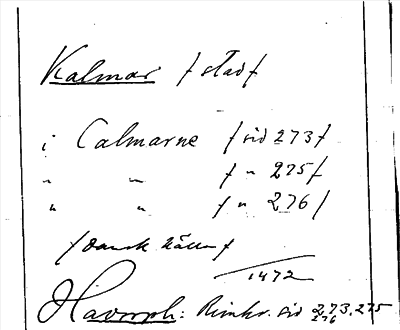 Kalmar / stad /
i Calmarne / sid 273 /
" " / " 275 /
" " / " 276 /
/ Dansk källa /
1472
: Rimkr. sid 273, 275
276